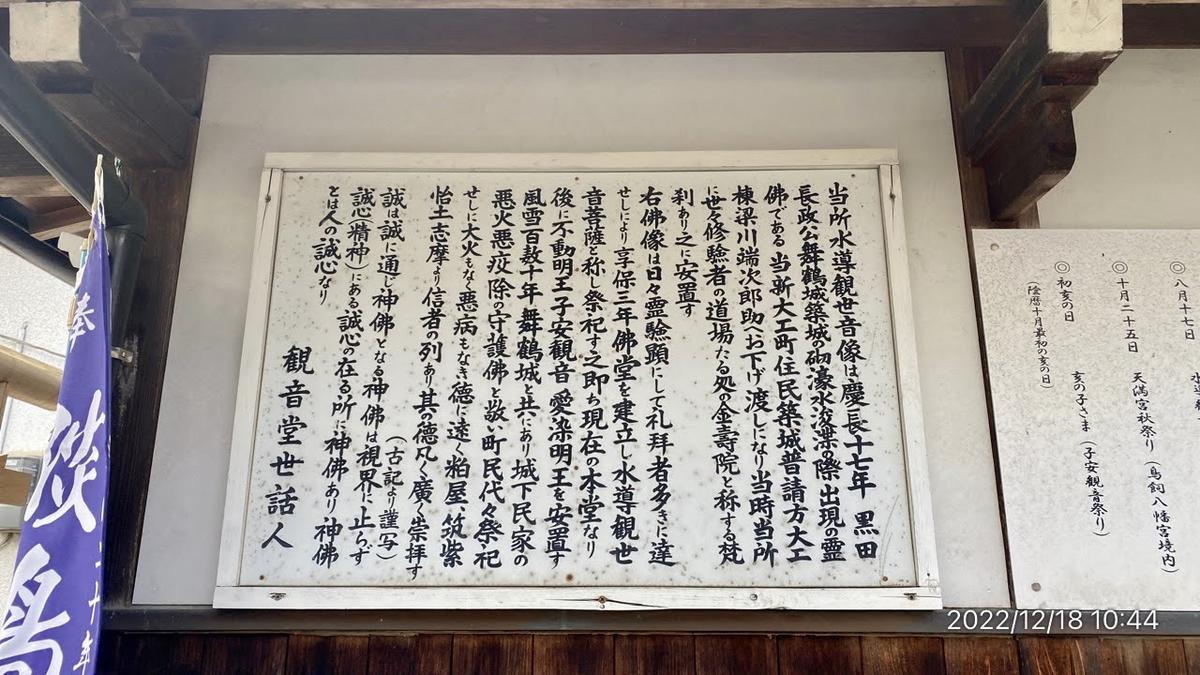 当所水導観世音像は慶長十七年 黒田
長政公舞鶴城築城の砌濠水浚渫の際出現の霊
佛である 当新大工町住民築城普請方大工
棟梁川端次郎助へお下げ渡しになり当時当所
に世々修験者の道場たる処の金壽院と称する梵
刹あり之に安置す
右佛像は日々霊験顕にして礼拜者多きに達
せしにより享保三年佛堂を建立し水導観世
音菩薩と称し祭祀す之即ち現在の本堂なり
後に不動明王子安観音愛染明王を安置す
風雪百数十年舞鶴城と共にあり城下民家の
悪火悪疫除の守護佛と敬い町民代々祭祀
せしに大火もなく悪病もなき徳に遠く粕屋、筑紫
怡土志摩より信者の列あり其の徳凡く廣く崇拝す
(古記より謹写)
誠は誠に通じ神佛となる神佛は視界に止らず
誠心(精神)にある誠心の在る所に神佛あり神佛
とは人の誠心なり
観音堂世話人
八月十七日
◎十月二十五日 天満宮秋祭り (鳥飼八幡宮境内)
◎初亥の日 亥の子さま (子安観音祭り)
(陰暦十月最初の亥の日)
奉
二十年
2022/12/18 10:44